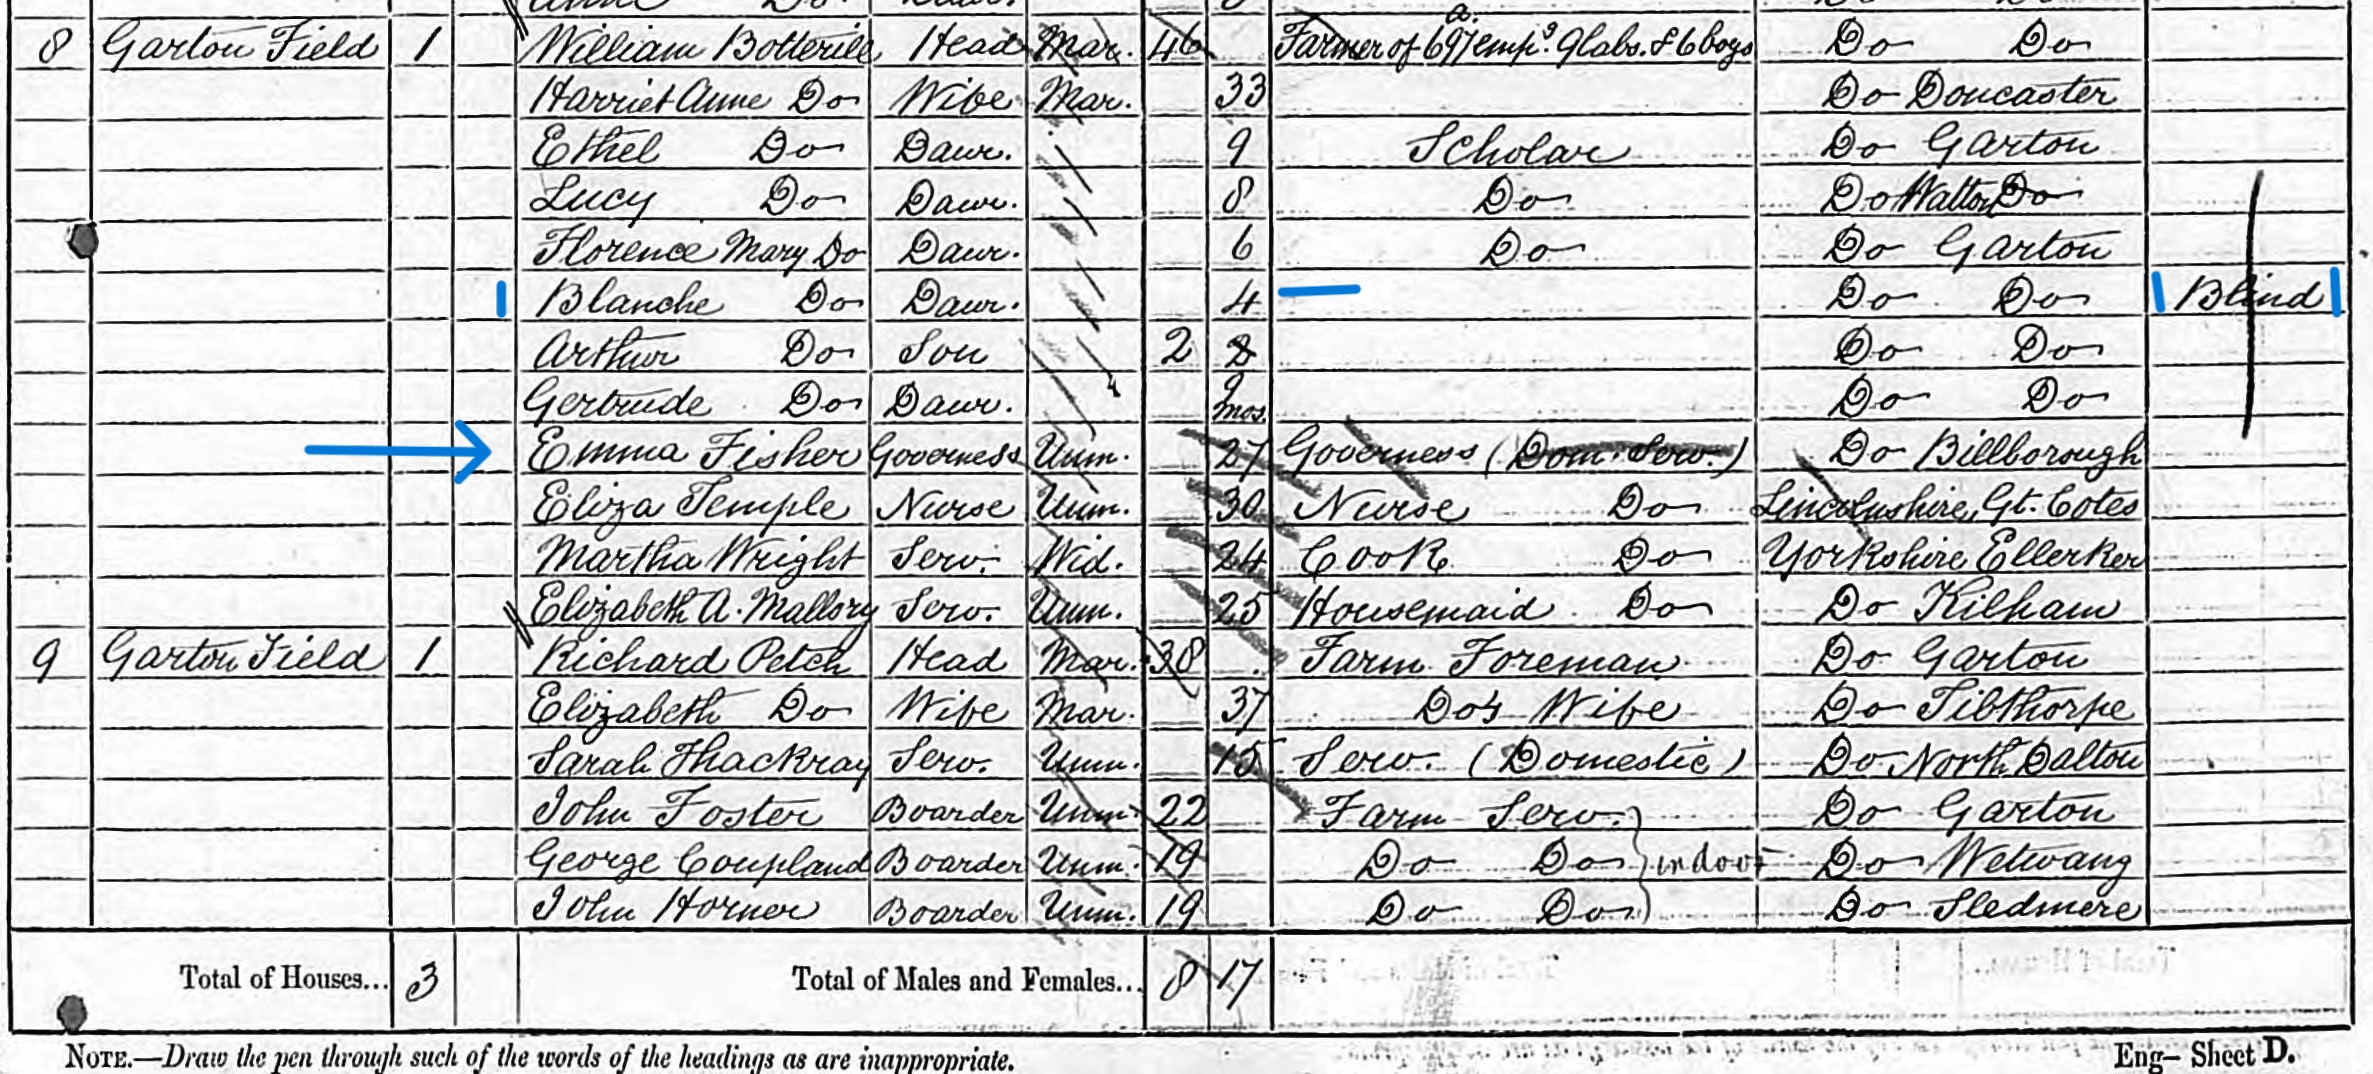 8 Garton Field 1 William Botterill Head Mar. 46 Farmer of 697 a. emps. 9 labs. & 6 boys Do Do
Harriet Anne Do Wife Mar. 33 Do Doncaster
Ethel Do Daur. 9 Scholar Do Garton
Lucy Do Daur. 8 Do Do Walton Do
Florence Mary Do Daur. 6 Do Do Garton
Blanche Do Daur. 4 Do Do Blind
Arthur Do Son 2 2 Do Do
Gertrude Do Daur. 9 mos. Do Do
Emma Fisher Governess Unm. 27 Governess (Dom. Serv.) Do Billborough
Eliza Temple Nurse Unm. 30 Nurse Do Lincolnshire, Gt. Cotes
Martha Wright Serv. Wid. 24 Cook Do Yorkshire Ellerker
Elizabeth A. Mallory Serv. Unm. 25 Housemaid Do Do Kilham
9 Garton Field 1 Richard Petch Head Mar. 38 Farm Foreman Do Garton
Elizabeth Do Wife Mar. 37 Do's Wife Do Tibthorpe
Sarah Thackray Serv. Unm. 15 Serv. (Domestic) Do North Dalton
John Foster Boarder Unm. 22 Farm Serv. Do Garton
George Coupland Boarder Unm. 19 Do Do indoor Do Wetwang
John Horner Boarder Unm. 19 Do Do Do Sledmere
Total of Houses... 3 Total of Males and Females... 8 17
NOTE.—Draw the pen through such of the words of the headings as are inappropriate.
Eng— Sheet D.